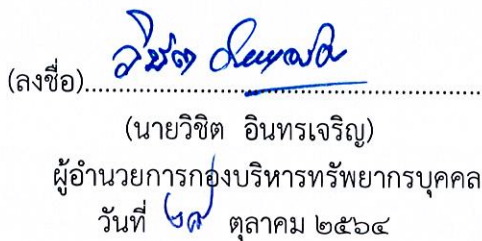 (ลงชื่อ)
(นายวิชิต อินทรเจริญ)
ผู้อำนวยการกองบริหารทรัพยากรบุคคล
วันที่ ตุลาคม ๒๕๖๔